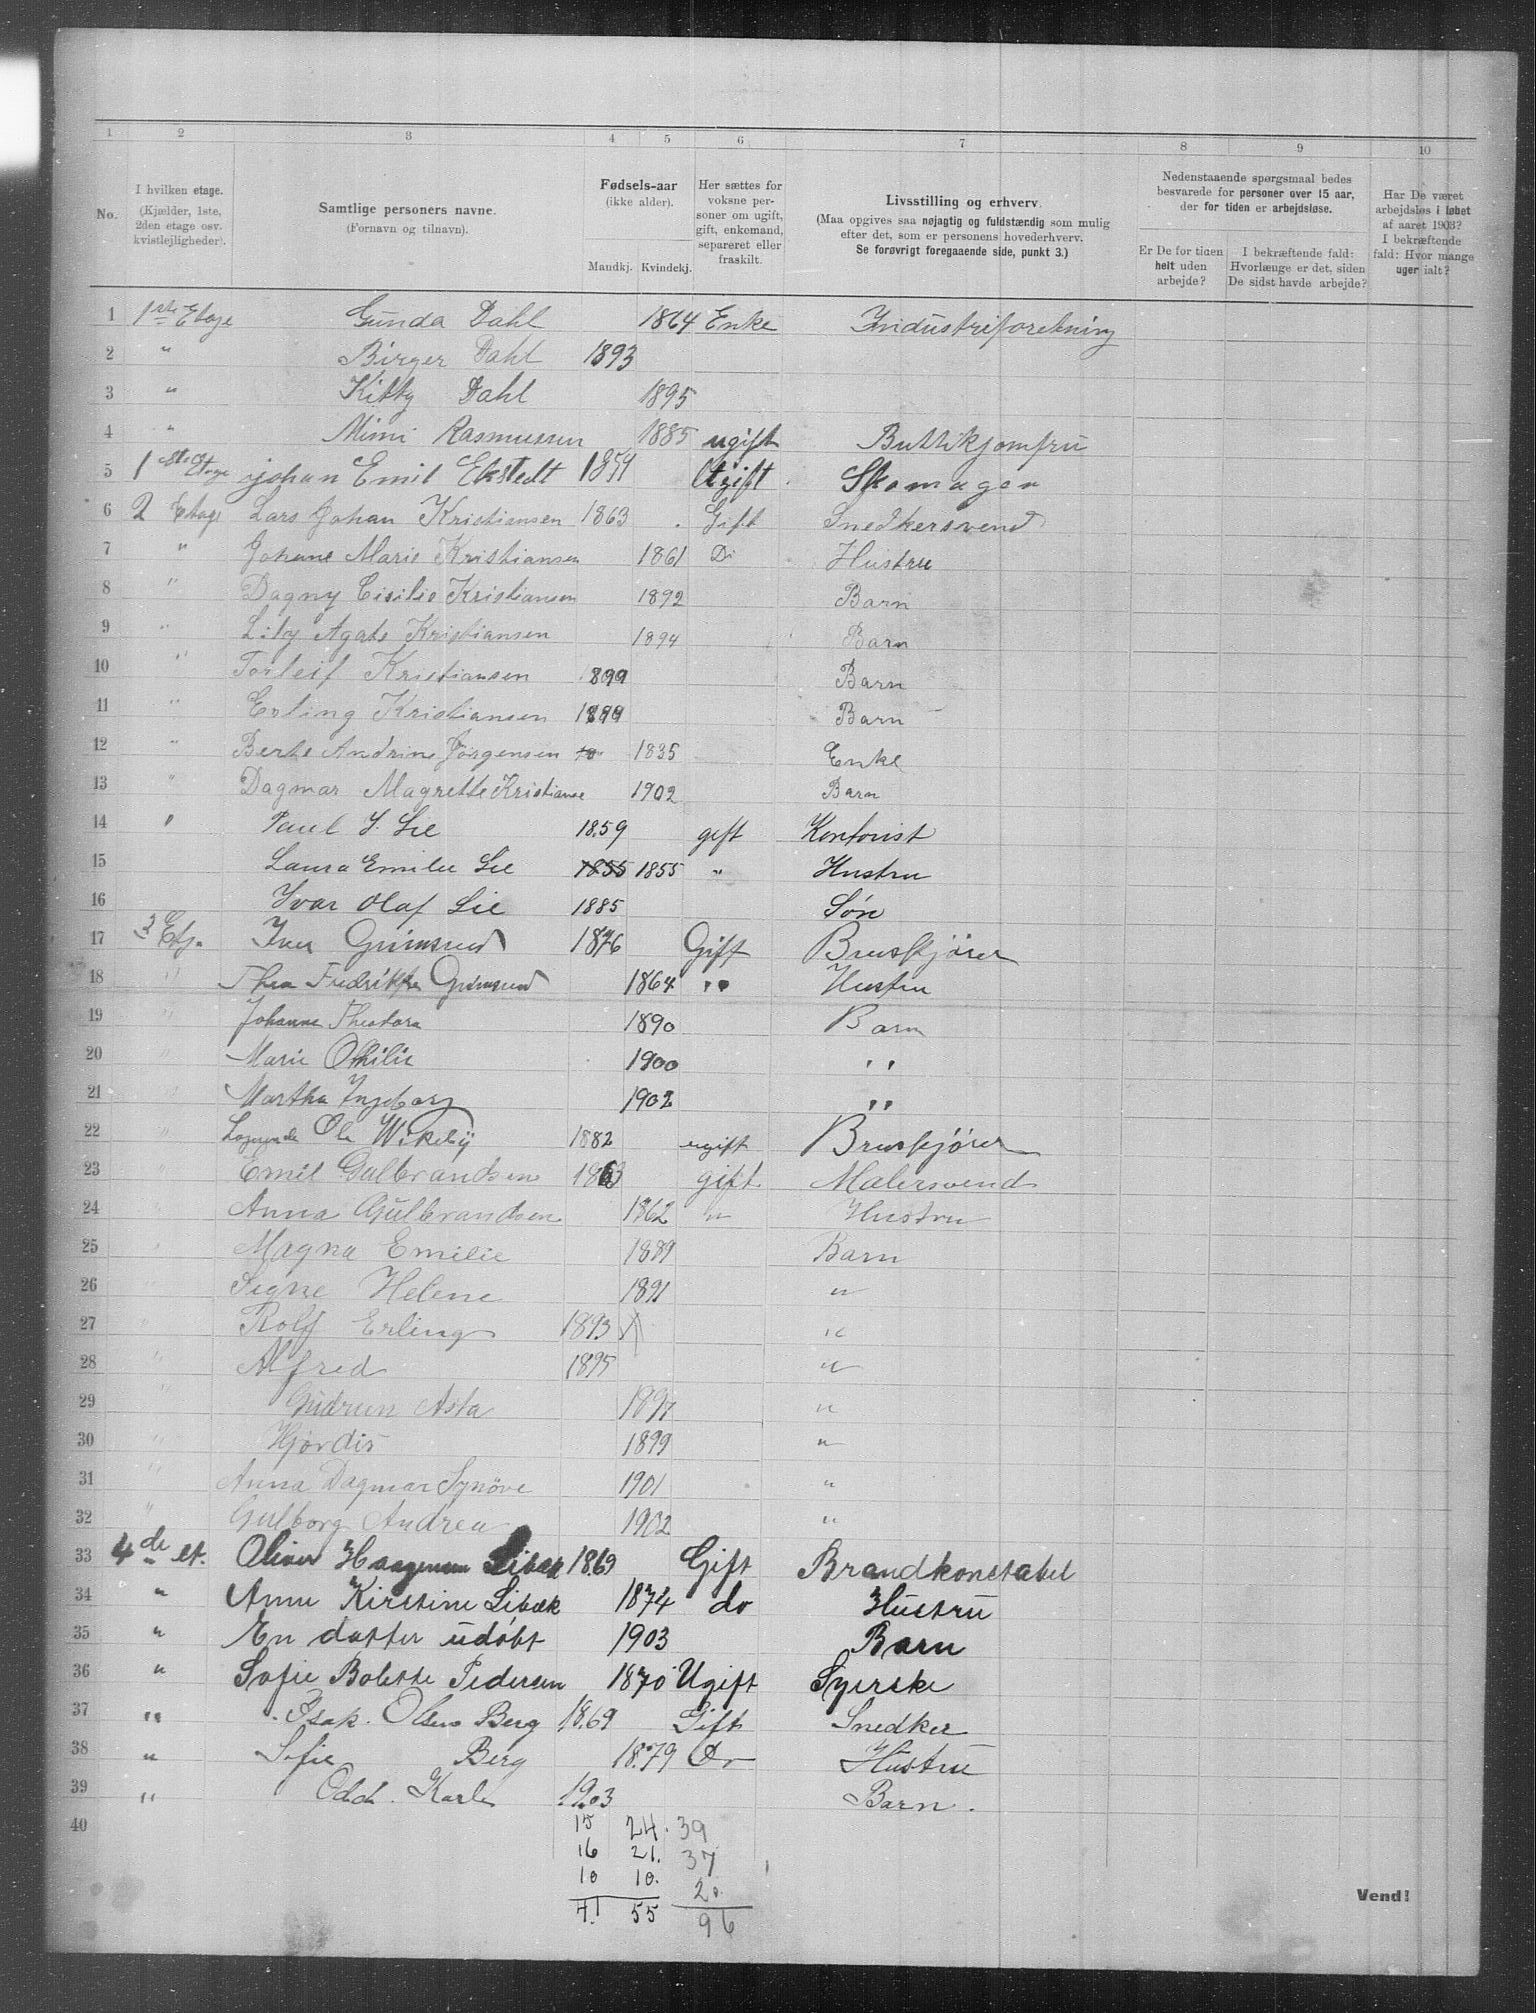 1 2 3 4 5 6 7 8 9 10
No.
I hvilken etage.
(Kjælder, 1ste,
2den etage osv.
kvistlejligheder).
Samtlige personers navne.
(Fornavn og tilnavn).
Fødsels-aar
(ikke alder).
Mandkj. Kvindekj.
Her sættes for
voksne per-
soner om ugift,
gift, enkemand,
separeret eller
fraskilt.
Livsstilling og erhverv.
(Maa opgives saa nøjagtig og fuldstændig som mulig
efter det, som er personens hovederhverv.
Se forøvrigt foregaaende side, punkt 3.)
Nedenstaaende spørgsmaal bedes
besvarede for personer over 15 aar,
der for tiden er arbejdsløse.
Er De for tiden
helt uden
arbejde?
I bekræftende fald:
Hvorlænge er det, siden
De sidst havde arbejde?
Har De været
arbejdsløs i løbet
af aaret 1903?
I bekræftende
fald: Hvor mange
uger ialt?
1 1ste Etage Gunda Dahl 1864 Enke Industriforetning
2 " Birger Dahl 1893
3 " Kitty Dahl 1895
4 " Mimi Rasmussen 1885 ugift Buttikjomfru
5 1ste Etage Johan Emil Ekstedt 1854 Ugift Skomager
6 2 Etage Lars Johan Kristiansen 1863 Gift Snedkersvend
7 " Johane Marie Kristiansen 1861 Do Hustru
8 " Dagny Cisilie Kristiansen 1892 Barn
9 " Lily Agate Kristiansen 1894 Barn
10 " Torleif Kristiansen 1899 Barn
11 " Erling Kristiansen 1899 Barn
12 " Berte Andrine Jørgensen 1835 Enke
13 " Dagmar Magrette Kristianse 1902 Barn
14 " Paul S. Lie 1859 gift Kontorist
15 Laura Emilie Lie 1855 1855 " Hustru
16 Ivar Olaf Lie 1885 Søn
17 3 Etg. Iver Grimsrud 1876 Gift Bruskjører
18 " Thea Fredrikke Grimsrud 1864 " Hustru
19 " Johanne Theodora 1890 Barn
20 " Marie Othilie 1900 "
21 " Martha Ingeborg 1902 "
22 " Logerende Ole Wikeby 1882 ugift Bruskjører
23 " Emil Gulbrandsen 1863 gift Malersvend
24 " Anna Gulbrandsen 1862 " Hustru
25 " Magna Emilie 1889 Barn
26 " Signe Helene 1891 "
27 " Rolf Erling 1893 "
28 " Alfred 1895 "
29 " Gudrun Asta 1897 "
30 " Hjørdis 1899 "
31 " Anna Dagmar Synøve 1901 "
32 " Gulborg Andrea 1902 "
33 4de et. Oliver Haagensen Libæk 1869 Gift Brandkonstabel
34 " Anne Kirstine Libæk 1874 do Hustru
35 " En datter udøbt 1903 Barn
36 " Sofie Bolette Pedersen 1870 Ugift Syerske
37 " Isak. Olsen Berg 1869 Gift Snedker
38 " Sofie Berg 1879 Do Hustru
39 " Odd. Karl 1903 Barn.
40 15 24. 39
16 21. 37
10 10. 20
41 55 96
Vend!